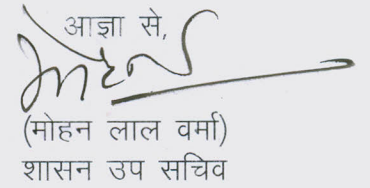 आज्ञा से,
मोहन
(मोहन लाल वर्मा)
शासन उप सचिव